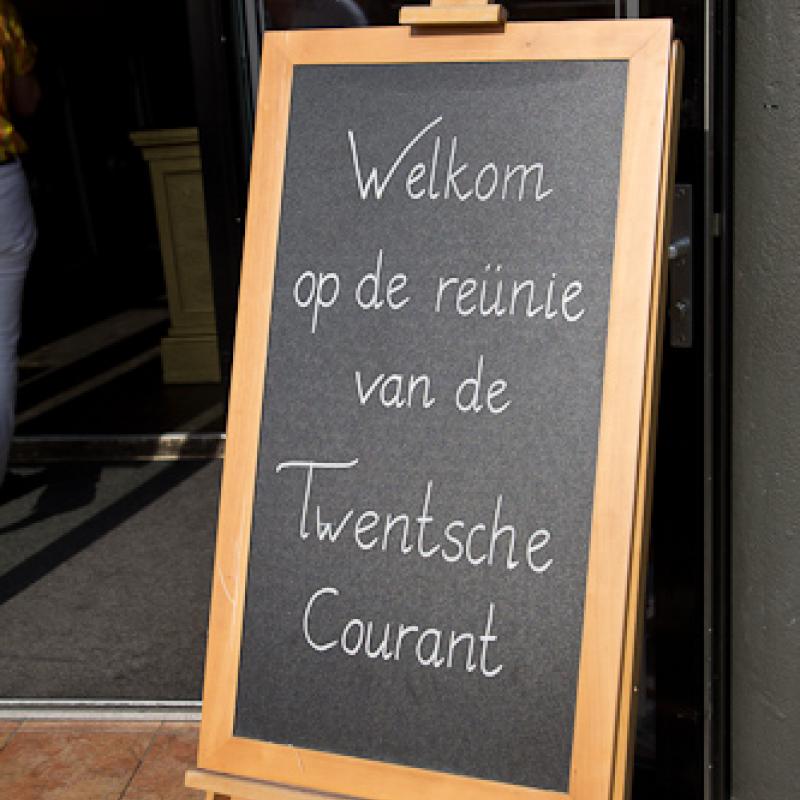 Welkom
op de reünie
van de
Twentsche
Courant